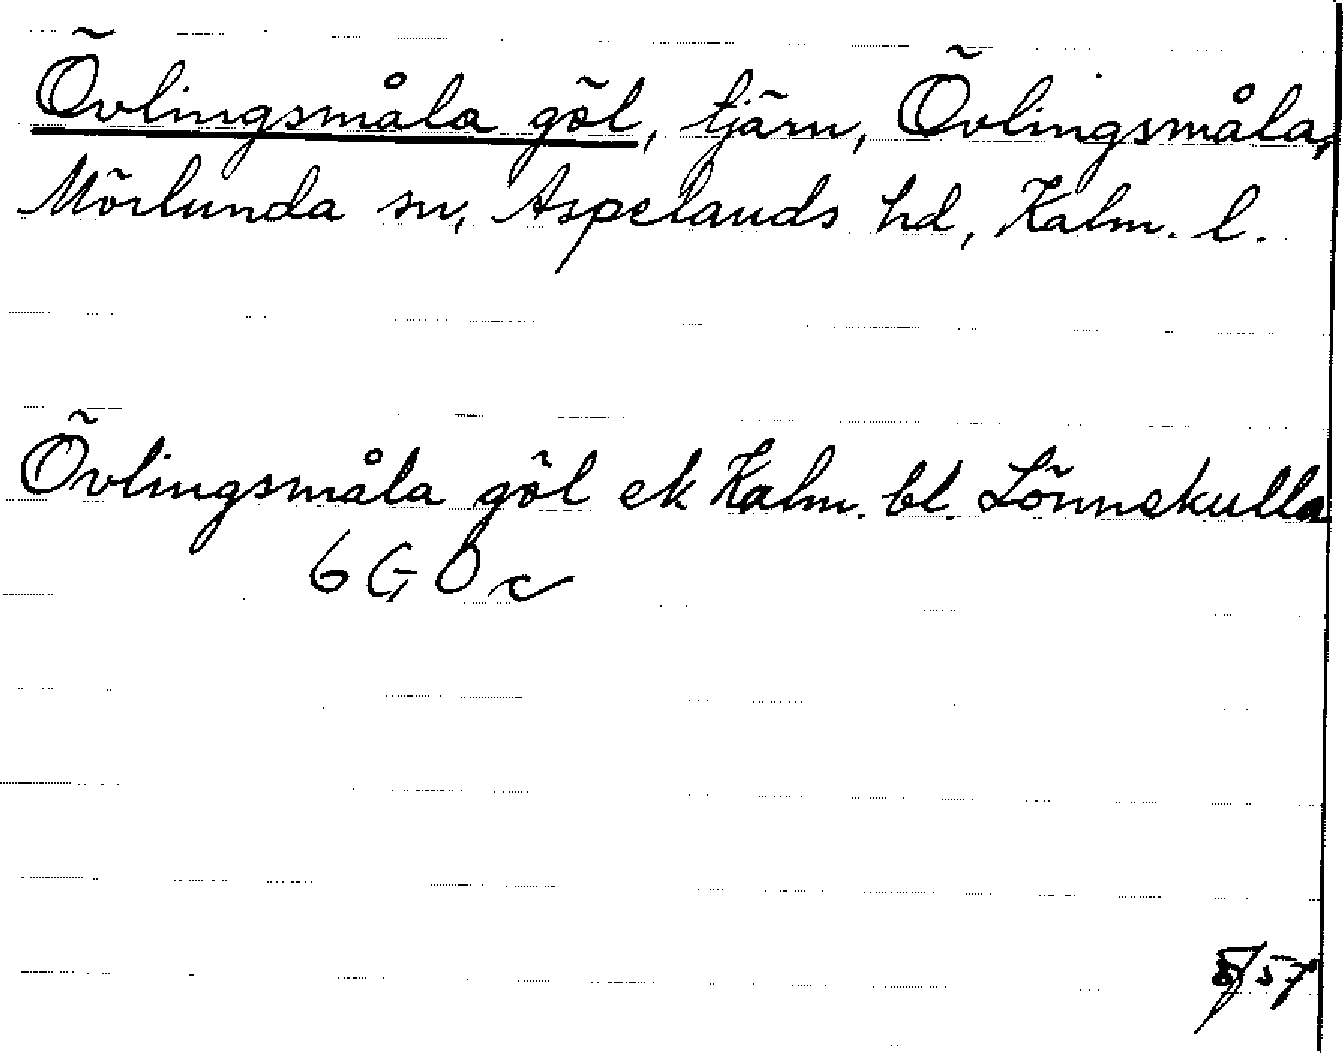 Övlingsmåla göl, tjärn, Övlingsmåla,
Mörlunda sn, Aspelands hd, Kalm. l.
Övlingsmåla göl ek Kalm. bl. Lönnekulla
6 G 0 c